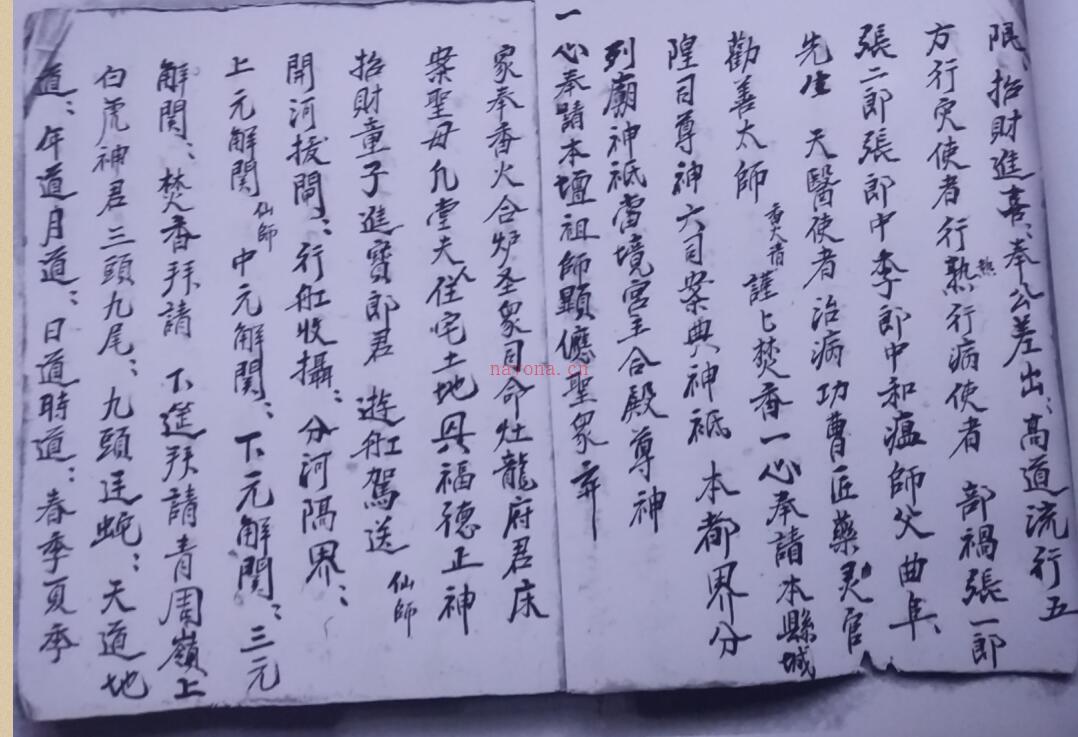 限、招財進喜：奉公差出：高道流行五
方行灾使者行熟热行病使者 部禍張一郎
張二郎張郎中季郎中和瘟師父曲阜、
先生 天醫使者治病功曹医藥灵官
勸善太師 謹上焚香一心奉請本縣城
隍司尊神六司案典神祇 本都界分
列廟神祇當境宮主合殿尊神
一心奉請本壇祖師顕應聖衆
家奉香火合炉圣衆司命灶龍府君床
案聖母九堂夫住宅土地興福德正神
招財童子進寶郎君 遊舡駕送仙師
開河拔閘：行舡收攝：分河隔界：
上元解関仙師 中元解関：下元解関：三元
解関：焚香拜請 下筵拜請青周嶺上
白虎神君三頭九尾：九頭廷蛇：天道地
道：年道月道：日道時道：春季夏季
nayona.cn